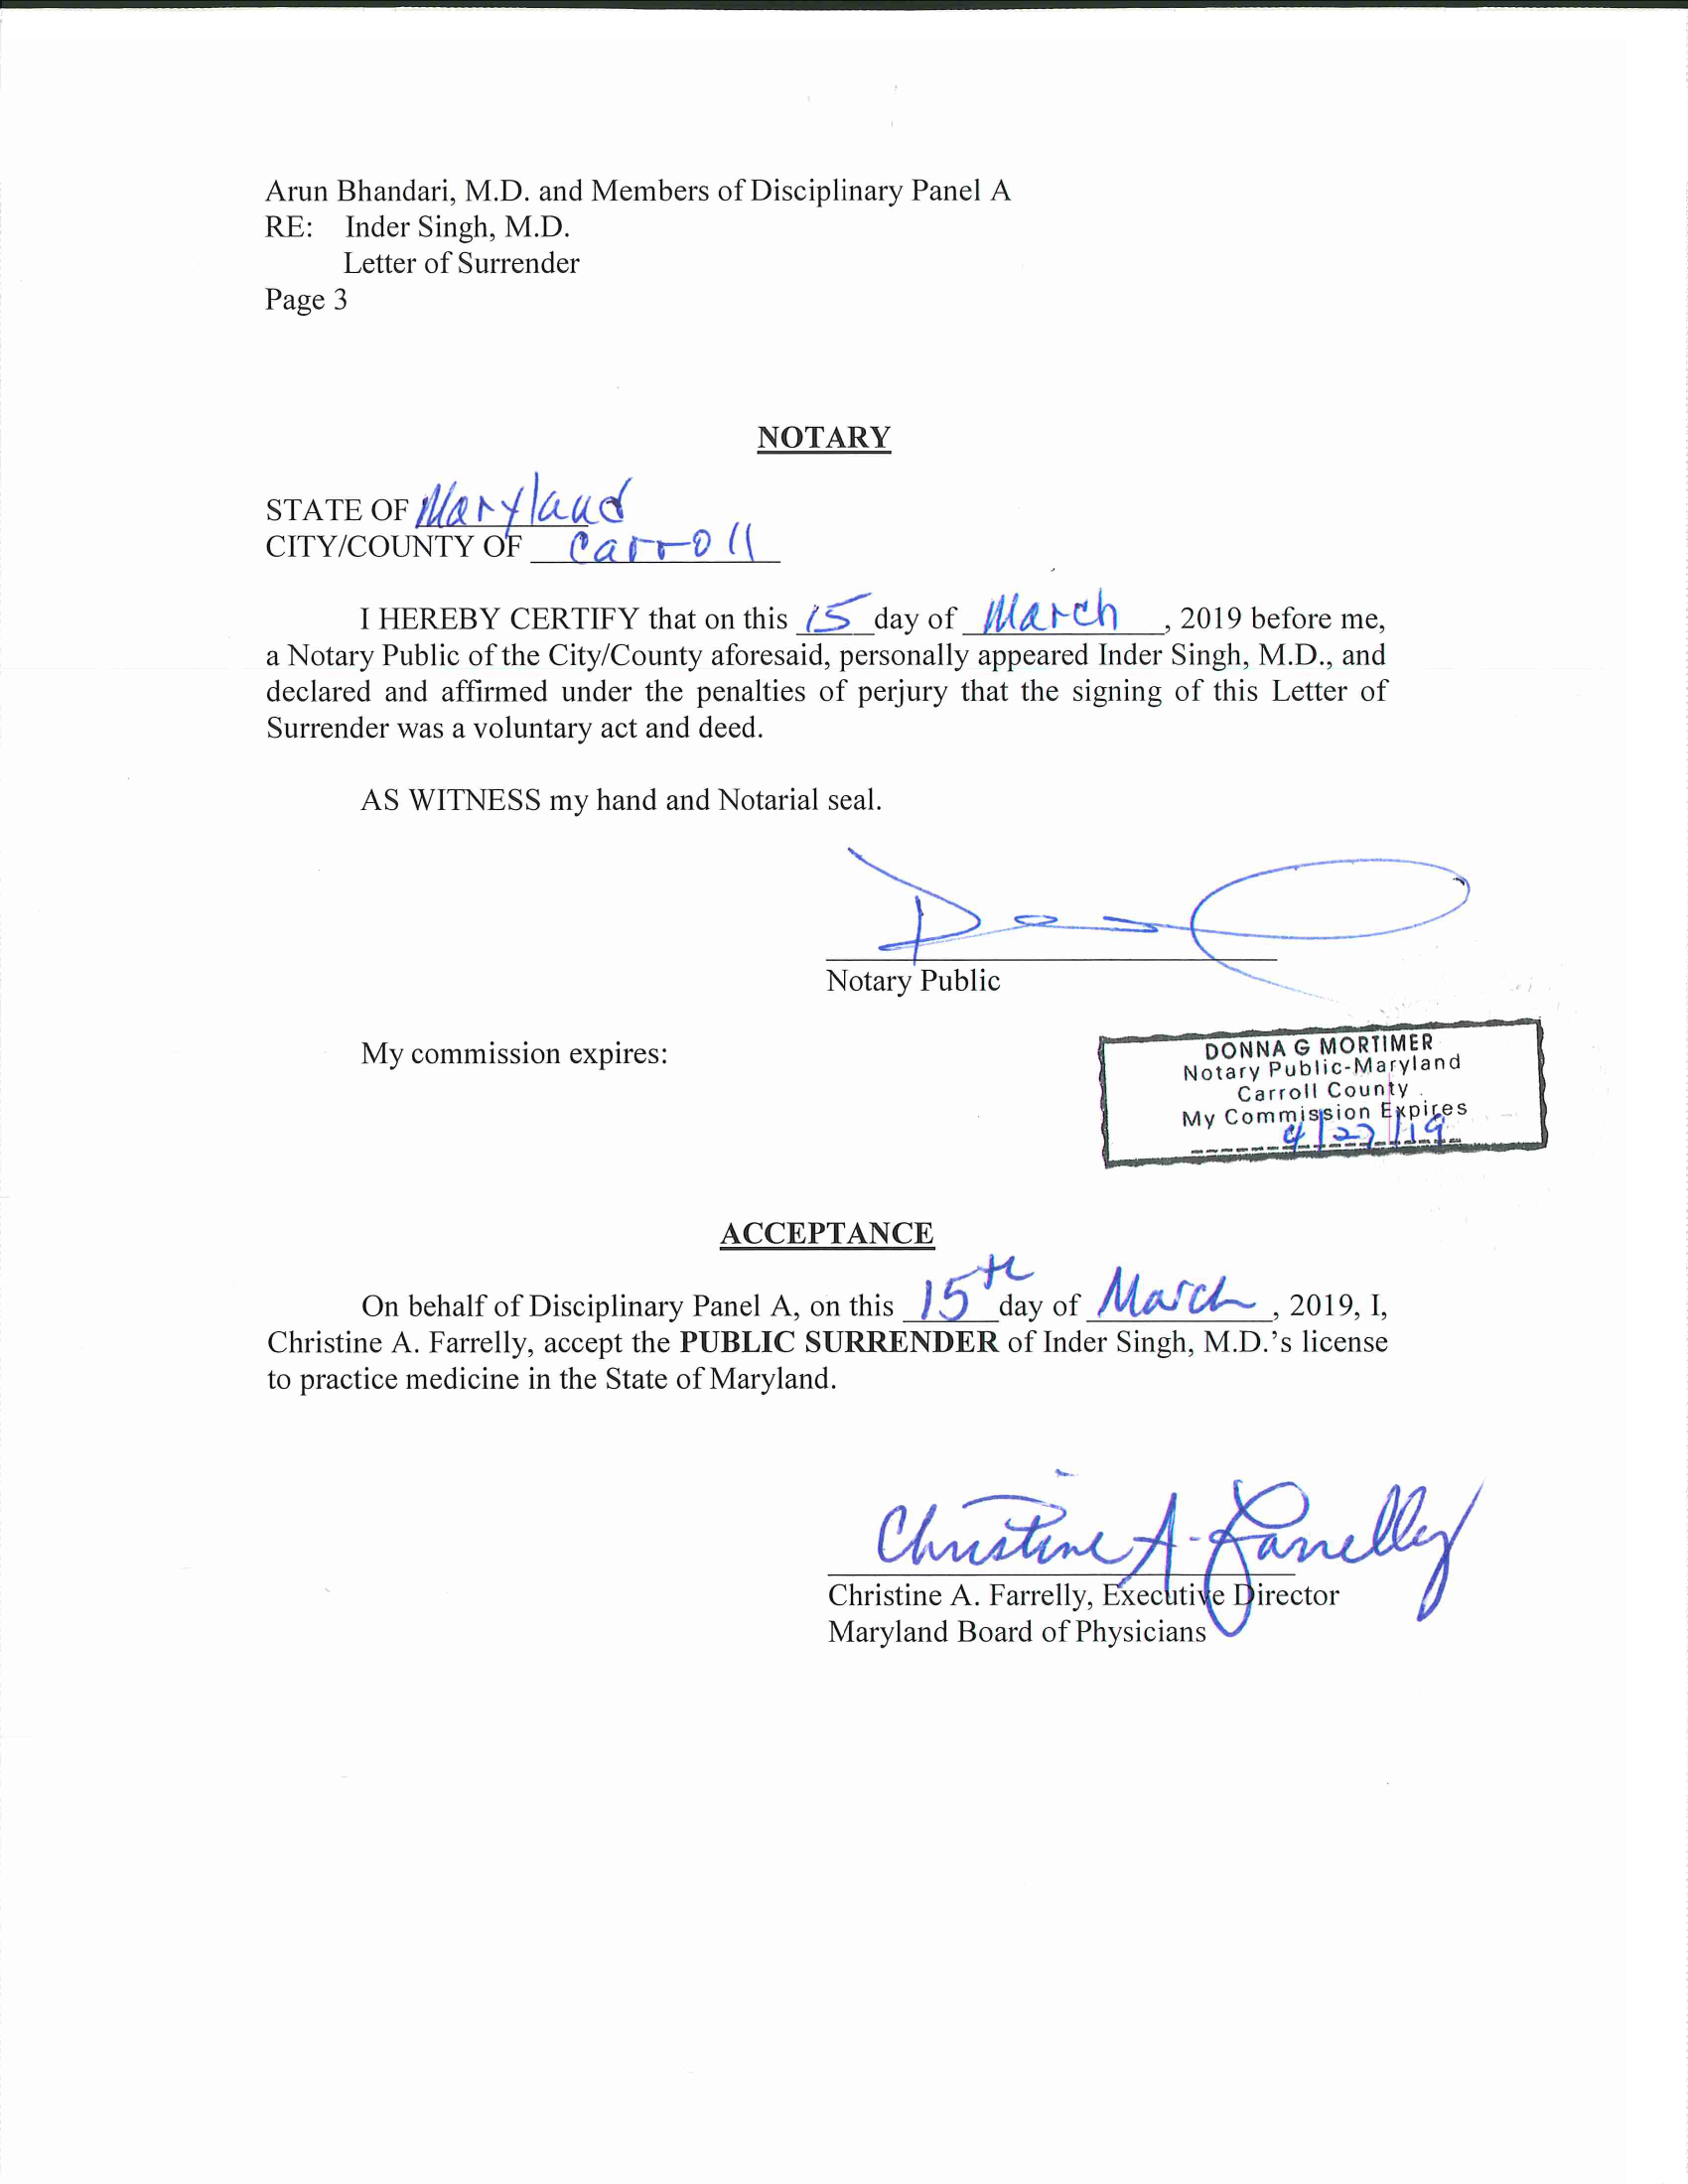 Arun Bhandari, M.D. and Members of Disciplinary Panel A
RE: Inder Singh, M.D.
Letter of Surrender
Page 3
NOTARY
STATE OF Maryland
CITY/COUNTY OF Carroll
I HEREBY CERTIFY that on this 15 day of March, 2019 before me,
a Notary Public of the City/County aforesaid, personally appeared Inder Singh, M.D., and
declared and affirmed under the penalties of perjury that the signing of this Letter of
Surrender was a voluntary act and deed.
AS WITNESS my hand and Notarial seal.
Notary Public
My commission expires:
DONNA G MORTIMER
Notary Public-Maryland
Carroll County
My Commission Expires
4/27/19
ACCEPTANCE
On behalf of Disciplinary Panel A, on this 15th day of March, 2019, I,
Christine A. Farrelly, accept the PUBLIC SURRENDER of Inder Singh, M.D.'s license
to practice medicine in the State of Maryland.
Christine A. Farrelly
Christine A. Farrelly, Executive Director
Maryland Board of Physicians